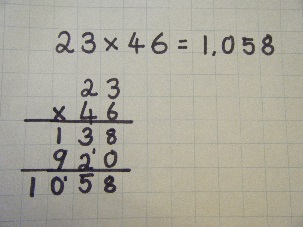 23 × 46 = 1,058
23
× 46
138
920
1058